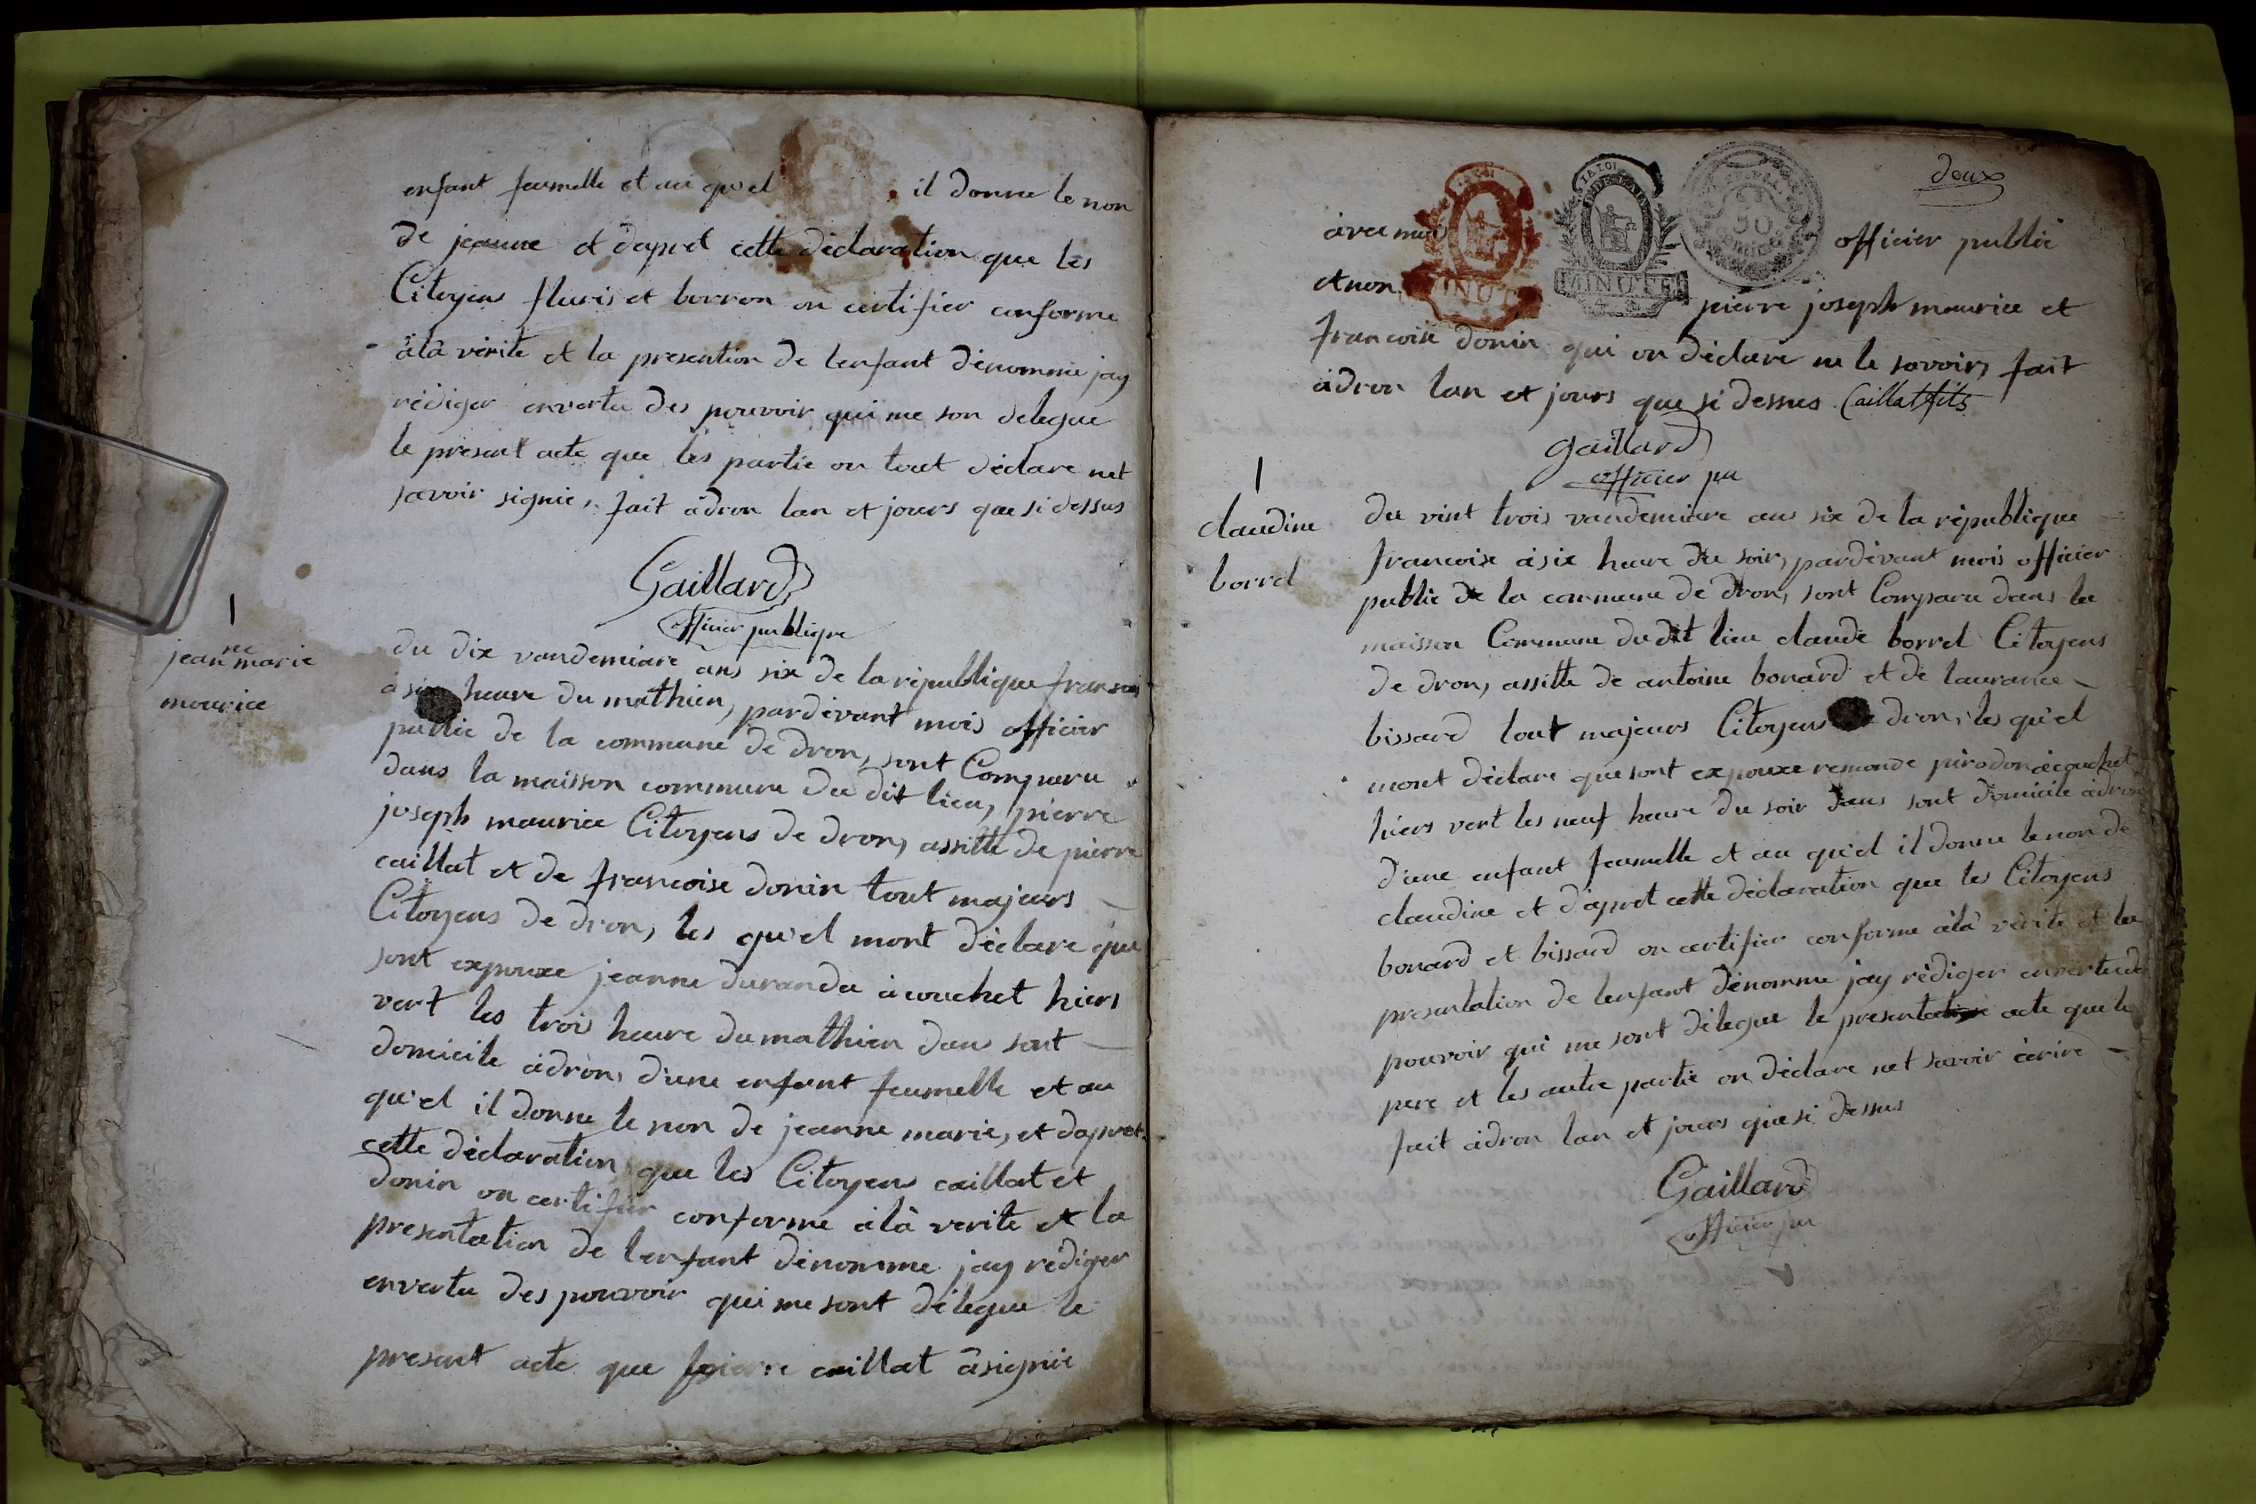 enfant feumelle et au qu'el il donne le non
de jeanne et dapret cette déclaration que les
Citoyens fleuris et borron on certifier conforme
àlà vérite et la presention de lenfant dénommé jay
rédiger envertu des pouvoir qui me son delegue
le présent acte que les partie on tout déclare net
savoir signié, fait àdron lan et jours que si dessus
Gaillard
officier publique
jeanne marie
mourice
du dix vandemiare ans six de la république fransais
à six heure du mathien, pardevant mois officier
public de la commune de dron, sont Comparu
dans la maisson commune du dit lieu, pierre
joseph maurice Citoyens de dron, assitte de pierre
caillat et de francoise donin tout majeurs
Citoyens de dron, les qu'el mont déclare que
sont expouxe jeanne durandu àcouchet hiers
vert les trois heure du mathien dans sont
domicile àdron, d'une enfant feumelle et au
qu'el il donne le non de jeanne marie, et dapret
cette déclaration que les Citoyens caillat et
donin on certifier conforme àlà verite et la
presentation de lenfant dénomme jay rédiger
envertu des pouvoir qui me sont délegue le
present acte que pierre caillat àsignié
deux
àvec moi officier public
et non pierre joseph maurice et
francoise donin qui on déclare ne le savoir, fait
àdron lan et jours que si dessus Caillat fils
gaillard
officier pu
claudine
borrel
du vint trois vandemiare ans six de la république
francoise àsix heure du soir, pardevant mois officier
public de la commune de dron, sont Comparu dans la
maisson Commune du dit lieu claude borrel Citoyens
de dron, assitte de antoine bonard et de laurance
bissard tout majeurs Citoyens de dron, les qu'el
mont déclare que sont expouxe remonde pirodon àcouchet
hiers vert les neuf heure du soir dans sont domicile àdron
d'une enfant feumelle et au qu'el il donne le non de
claudine et d'apret cette déclaration que les Citoyens
bonard et bissard on certifier conforme àlà vérite et la
presentation de lenfant dénomme jay rédiger envertu des
pouvoir qui me sont délegue le present acte que le
pere et les autre partie on déclare net savoir écrire
fait àdron lan et jours que si dessus
Gaillard
officier pu
MINUTE
MINUTE